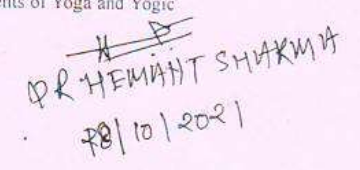 ents of Yoga and Yogic
DR HEMANT SHARMA
28/10/2021